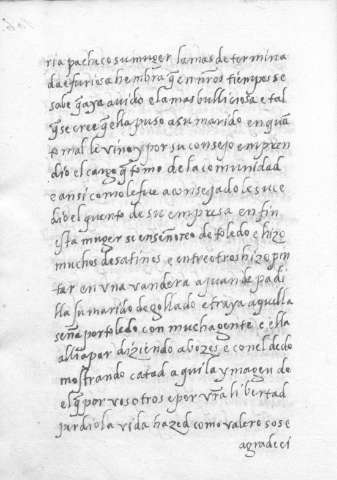 ria pacheco su muger la mas determina
da e furiosa hembra q̃ en nr̃os tiempos se
sabe q̃ aya avido e la mas bulliciosa e tal
q̃ se cree q̃ ella puso a su marido en quã
to mal le vino y por su consejo empren
dio el cargo q̃ tomo de la comunidad
e ansi como le fue aconsejado le suce
dio el quento de su empresa en fin
esta muger se enseñoreo de toledo e hizo
muchos desatinos e entre otros hizo pin
tar en una vandera a juan de padi
lla su marido degollado e traya aquella
seña por toledo con mucha gente e ella
alli a par diziendo a bozes e con el dedo
mostrando catad aqui la ymagen de
el q̃ por vosotros e por vr̃a libertad
perdio la vida hazed como valerosos e
agradeci